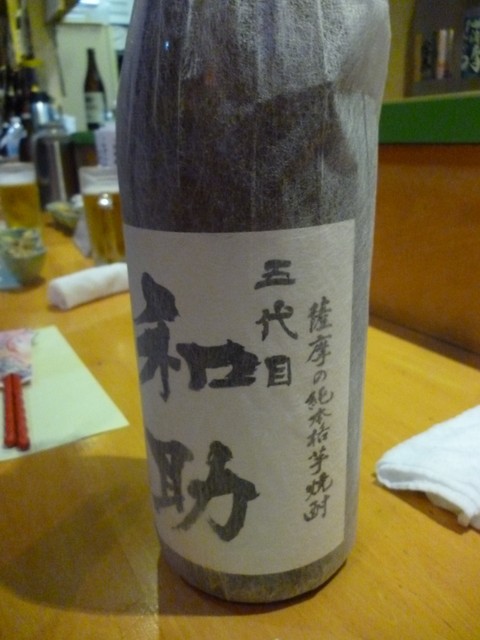 薩摩の純本格芋焼酎
五代目
和助